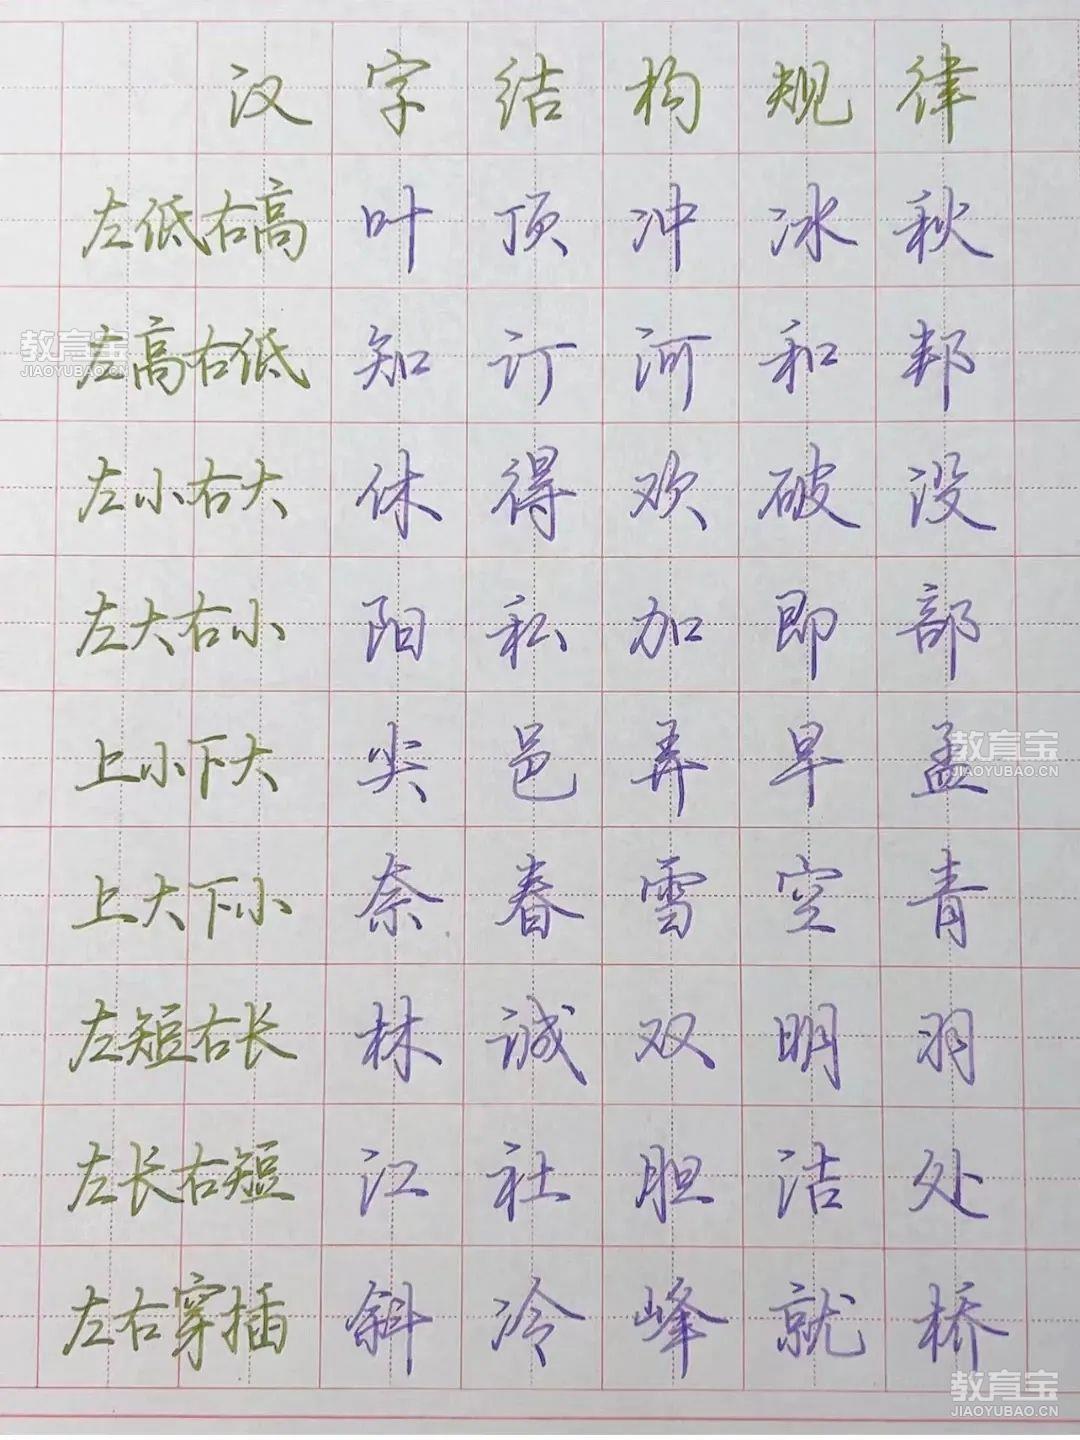 汉字结构规律
左低右高 叶 顶 冲 冰 秋
左高右低 知 订 河 和 邦
教育宝
JIAOYUBAO.CN
左小右大 休 得 欢 破 没
左大右小 阳 私 加 即 部
上小下大 尖 邑 弄 早 孟
教育宝
JIAOYUBAO.CN
上大下小 奈 春 雪 空 青
左短右长 林 诚 双 明 羽
左长右短 江 社 胆 洁 处
左右穿插 斜 冷 峰 就 桥
教育宝
JIAOYUBAO.CN